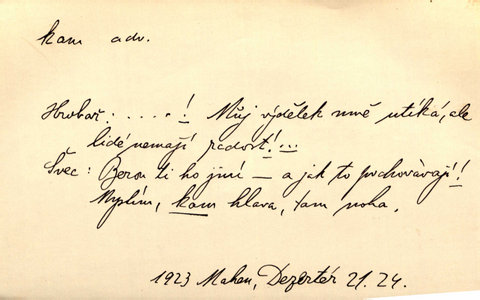 kam adv.
Hrobař: . . . . . ! Můj výdělek mně utíká, ale
lidé nemají radost! ...
Švec: Berou ti ho jiní – a jak to pochovávají!
Myslím, kam hlava, tam noha.
1923 Mahen, Dezertér 21.24.